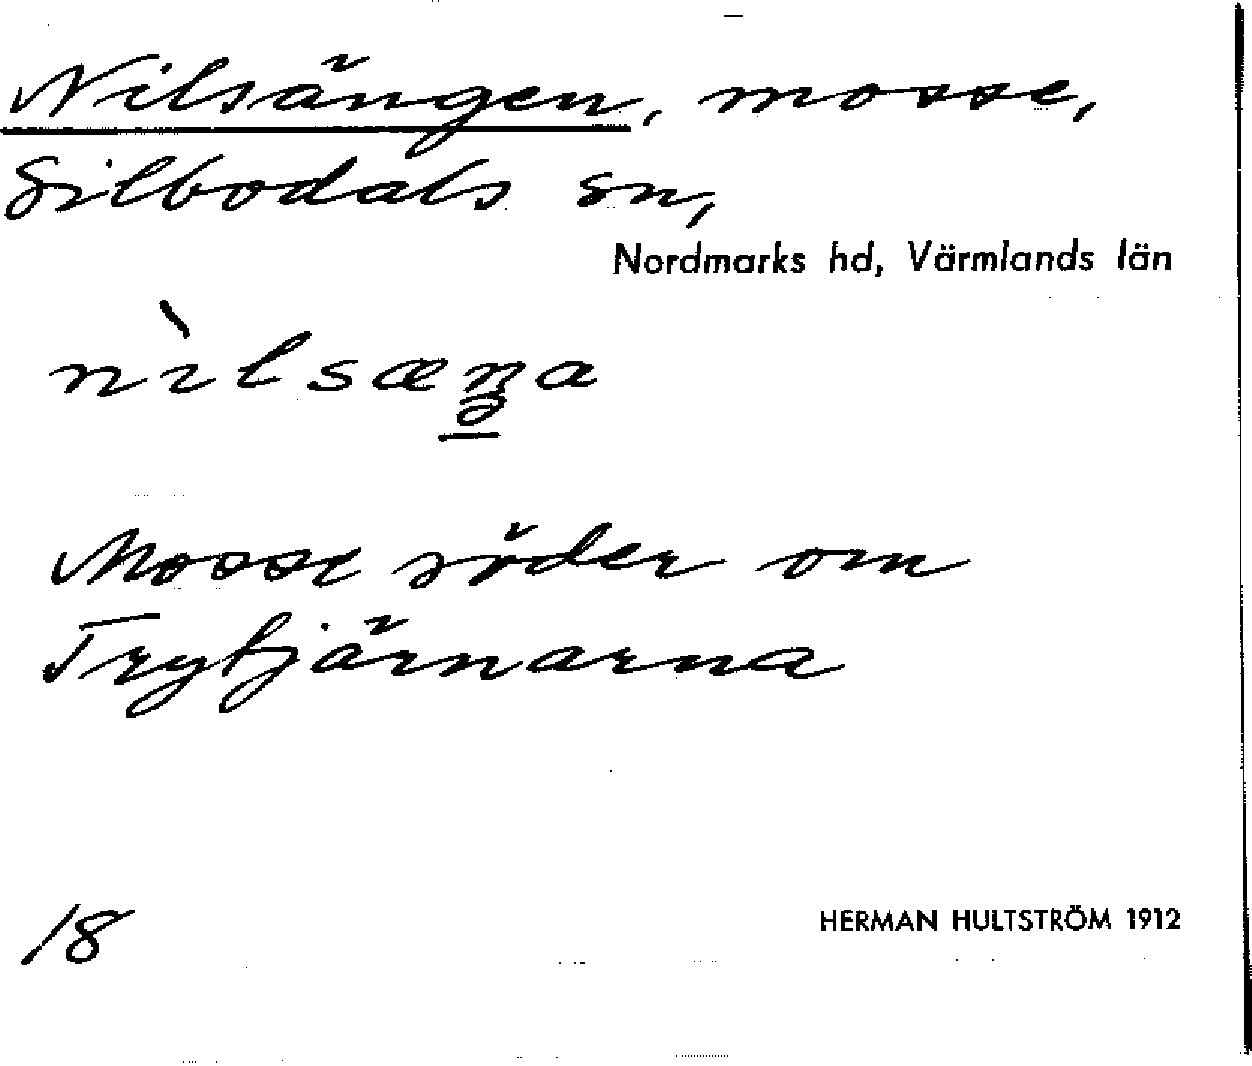 Nilsängen, mosse,
Silbodals sn,
Nordmarks hd, Värmlands län
nìlsæŋa
Mosse söder om
Trytjärnarna
18
HERMAN HULTSTRÖM 1912